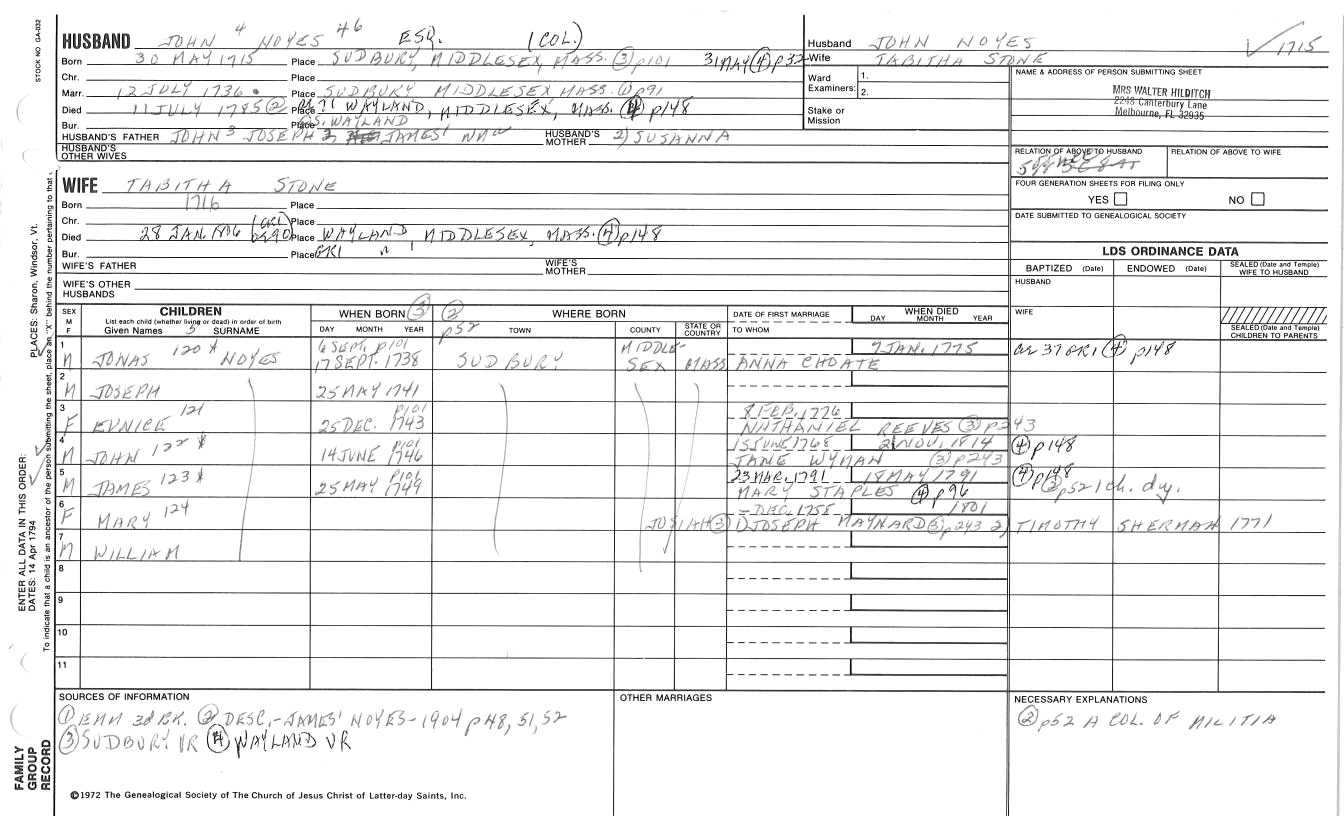 STOCK NO. GA-032
HUSBAND JOHN 4 NOYES 46 ESQ. (COL.)
Born 30 MAY 1715 Place SUDBURY, MIDDLESEX, MASS. ③ p101 31 MAY ④ p32
Chr. Place
Marr. 12 JULY 1736 Place SUDBURY MIDDLESEX MASS. ① p91
Died 11 JULY 1785 ② Place WAYLAND, MIDDLESEX, MASS. ④ p148
Bur. Place GS. WAYLAND
HUSBAND'S FATHER JOHN 3 JOSEPH 2 JAMES' HUSBAND'S MOTHER 2) SUSANNA
HUSBAND'S OTHER WIVES
Husband JOHN NOYES
Wife TABITHA STONE
Ward Examiners: 1.
2.
Stake or Mission
✓ 1715
NAME & ADDRESS OF PERSON SUBMITTING SHEET
MRS WALTER HILDITCH
2248 Canterbury Lane
Melbourne, FL 32935
RELATION OF ABOVE TO HUSBAND
RELATION OF ABOVE TO WIFE
FOUR GENERATION SHEETS FOR FILING ONLY
YES NO
DATE SUBMITTED TO GENEALOGICAL SOCIETY
WIFE TABITHA STONE
Born 1716 Place
Chr. Place
Died 28 JAN. Place WAYLAND, MIDDLESEX, MASS. ④ p148
Bur. Place GR1
WIFE'S FATHER WIFE'S MOTHER
WIFE'S OTHER HUSBANDS
LDS ORDINANCE DATA
BAPTIZED (Date) ENDOWED (Date) SEALED (Date and Temple) WIFE TO HUSBAND
HUSBAND
WIFE
SEALED (Date and Temple) CHILDREN TO PARENTS
SEX M F
CHILDREN
List each child (whether living or dead) in order of birth
Given Names 5 SURNAME
WHEN BORN ③
DAY MONTH YEAR
② p52
WHERE BORN
TOWN COUNTY STATE OR COUNTRY
DATE OF FIRST MARRIAGE
TO WHOM
WHEN DIED
DAY MONTH YEAR
1 M JONAS 120 X NOYES 6 SEPT. p101 17 SEPT. 1738 SUDBURY MIDDLE-SEX MASS ANNA CHOATE 7 JAN. 1775 GR1 ④ p148
2 M JOSEPH 25 MAY 1741
3 F EUNICE 121 25 DEC. 1743 p101 8 FEB. 1776 NATHANIEL REEVES ③ p243
4 M JOHN 122 X 14 JUNE 1746 15 JUNE 1768 JANE WYMAN ③ p243 2 NOV. 1814 ④ p148
5 M JAMES 123 X 25 MAY 1749 p101 23 MAR. 1791 MARY STAPLES ④ p96 18 MAY 1791 ④ p148 ② p52 1 ch. dy.
6 F MARY 124 — DEC. 1755 JOSIAH ③ 1) JOSEPH MAYNARD ③ p243 1801 2) TIMOTHY SHERMAN 1771
7 M WILLIAM
8
9
10
11
SOURCES OF INFORMATION
① EMM 3d BK. ② DESC.-JAMES' NOYES-1904 p48, 51, 52
③ SUDBURY VR ④ WAYLAND VR
OTHER MARRIAGES
NECESSARY EXPLANATIONS
② p52 A COL. OF MILITIA
©1972 The Genealogical Society of The Church of Jesus Christ of Latter-day Saints, Inc.
FAMILY GROUP RECORD
ENTER ALL DATA IN THIS ORDER:
DATES: 14 Apr 1794
PLACES: Sharon, Windsor, Vt.
To indicate that a child is an ancestor of the person submitting the sheet, place an "X" behind the number pertaining to that